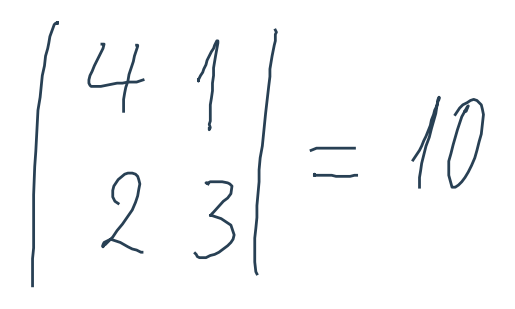 | 4 1 |
| 2 3 | = 10